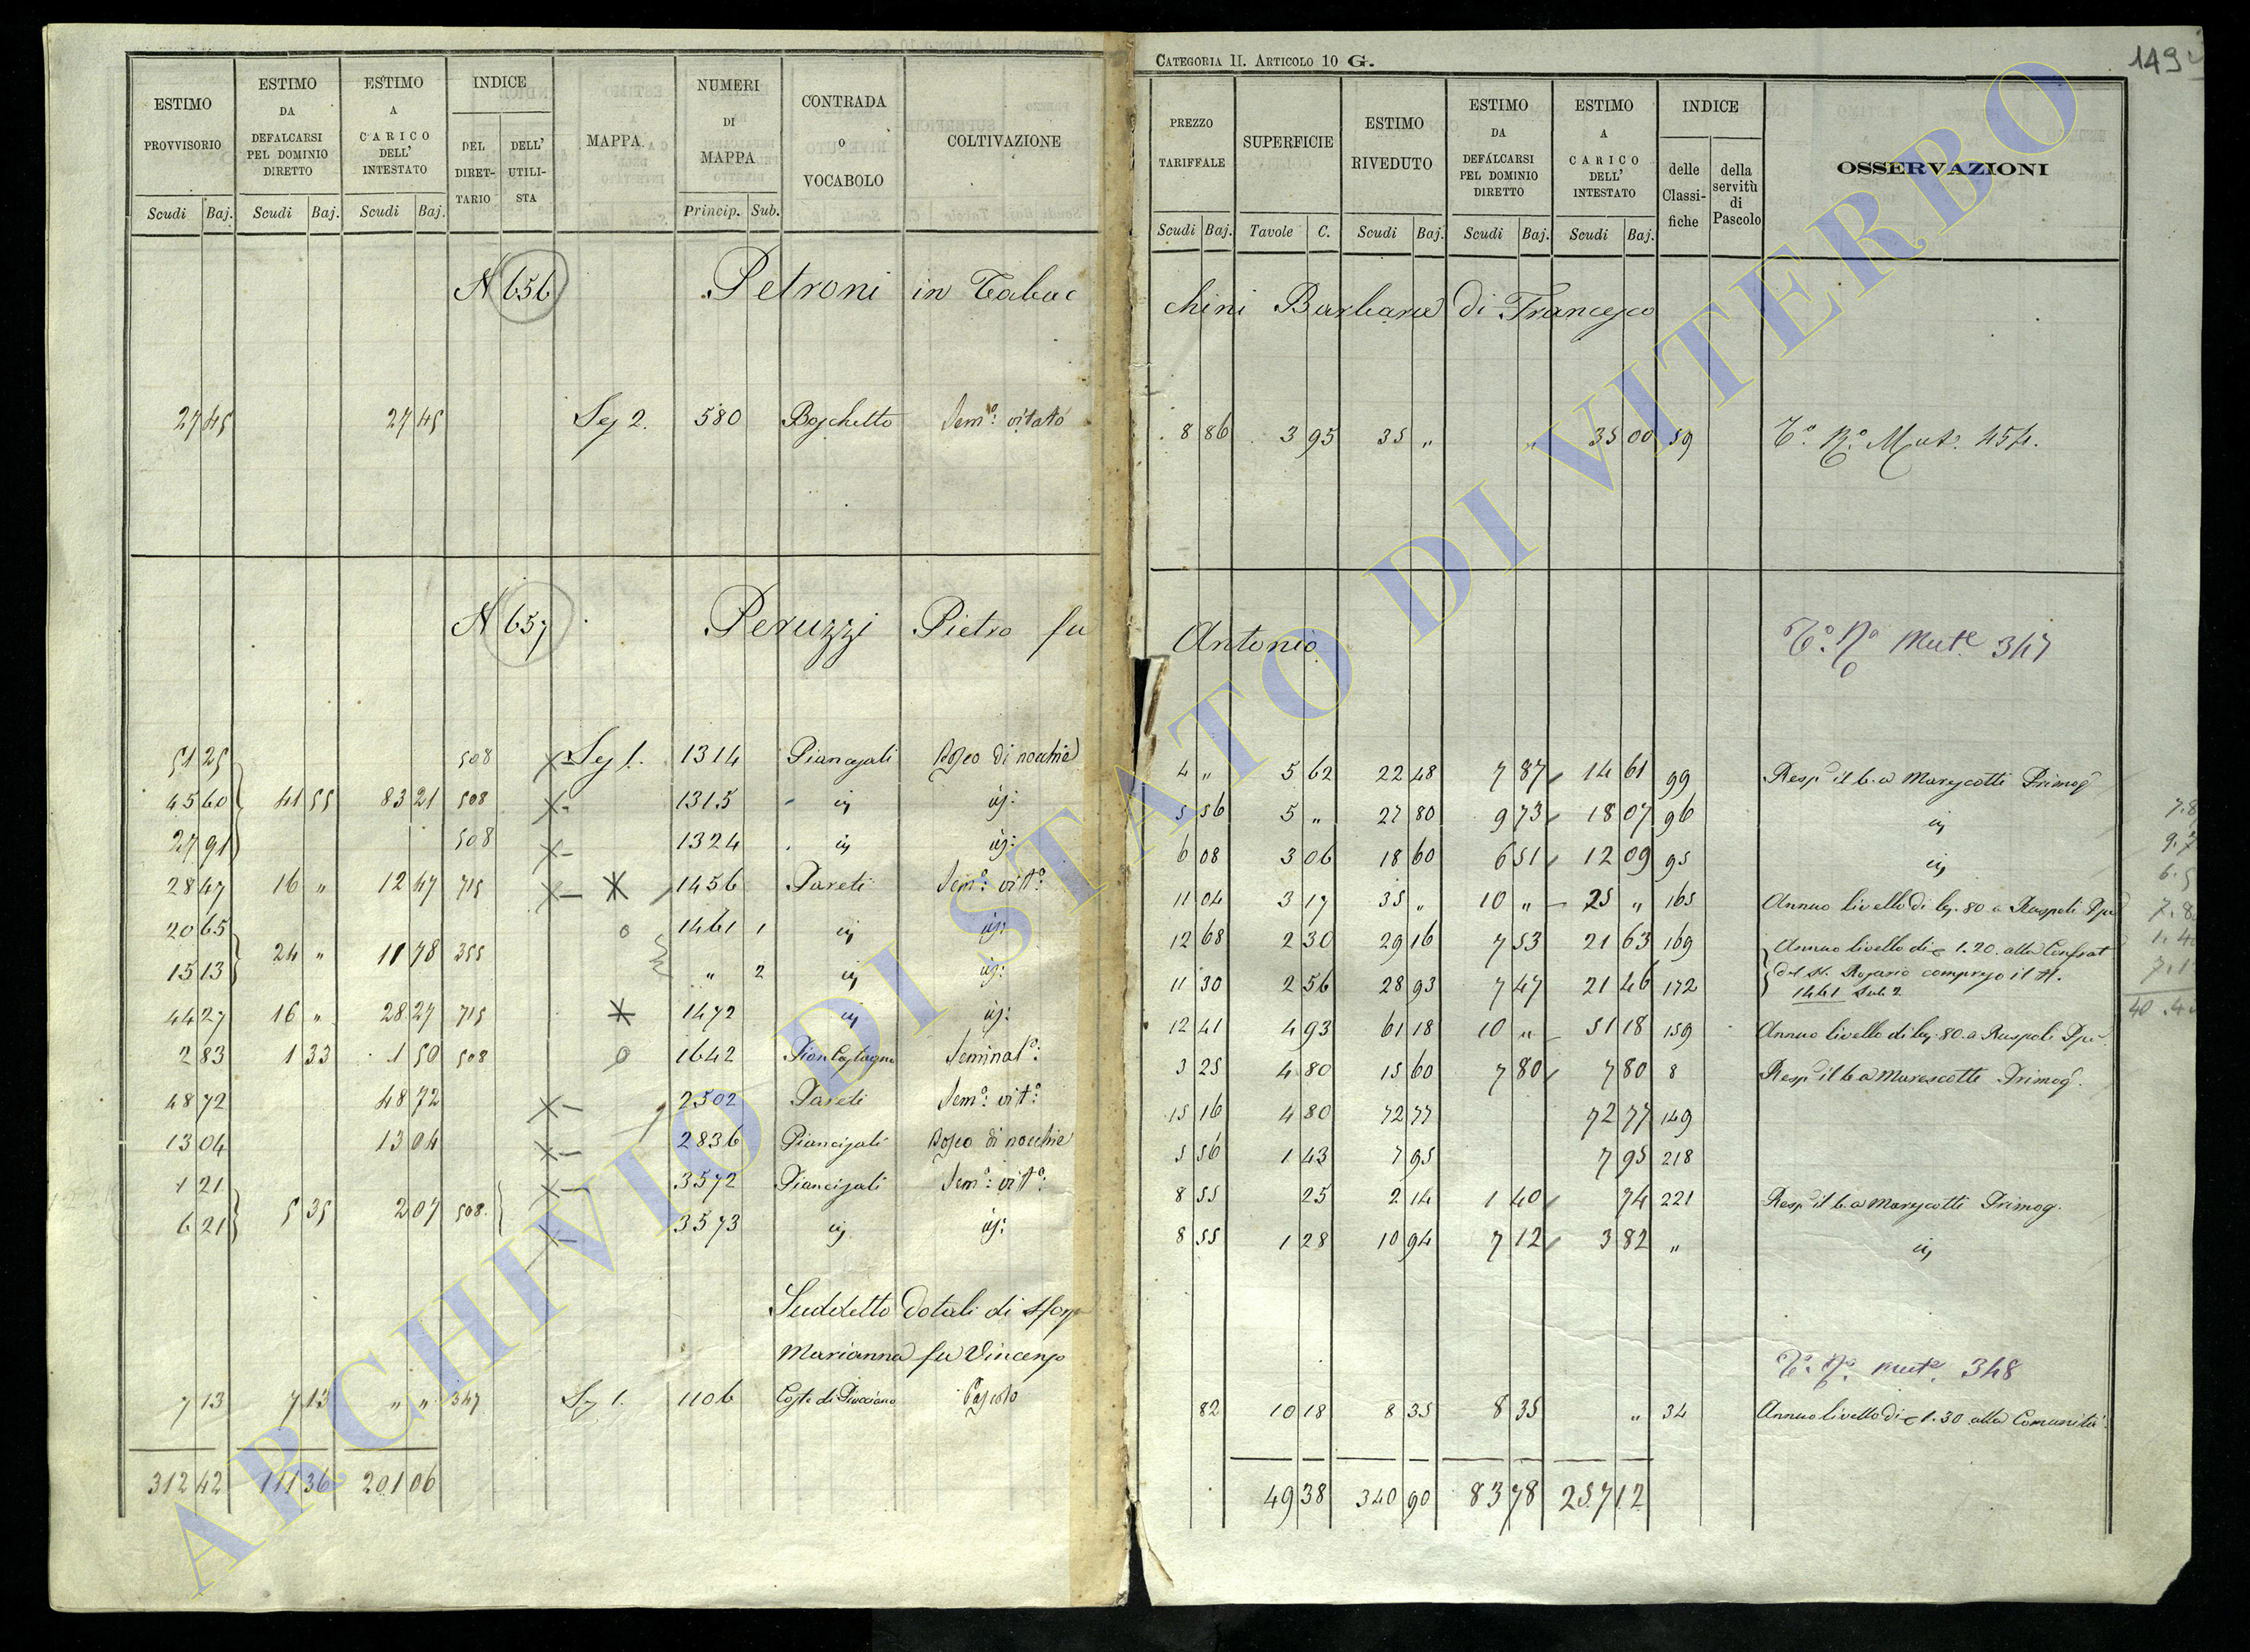 ESTIMO PROVVISORIO | ESTIMO DA DEFALCARSI PEL DOMINIO DIRETTO | ESTIMO A CARICO DELL' INTESTATO | INDICE | MAPPA. | NUMERI DI MAPPA | CONTRADA O VOCABOLO | COLTIVAZIONE
DEL DIRET-TARIO | DELL' UTILI-STA
Scudi | Baj. | Scudi | Baj. | Scudi | Baj. | Princip. | Sub.
N 656 Petroni in Tabac
27 45 | 27 45 | Sez 2. | 580 | Boschetto | Sem.o: vitato
N 657 Peruzzi Pietro fu
51 25 | 508 | x- Sez 1. | 1314 | Piancasali | Bosco di nocchie
45 60 | 41 55 | 83 21 | 508 | x- | 1315 | id | id:
27 91 | 508 | x- | 1324 | id | id:
28 47 | 16 " | 12 47 | 715 | x- | 1456 | Pareti | Sem.o: vit.o:
20 65 | o | 1461 | 1 | id | id:
24 " | 11 78 | 355
15 13 | " | 2 | id | id:
44 27 | 16 " | 28 27 | 715 | 1472 | id | id:
2 83 | 1 33 | 1 50 | 508 | o | 1642 | Pian Castagno | Seminat.o:
48 72 | 48 72 | x- | 2502 | Pareti | Sem.o: vit.o:
13 04 | 13 04 | x- | 2836 | Piancisali | Bosco di nocchie
1 21 | x- | 3572 | Piancisali | Sem.o: vit.o:
5 35 | 2 07 | 508
6 21 | x- | 3573 | id | id:
Suddetto dotali di
Marianna fu Vincenzo
7 13 | 7 13 | " " | 347 | Sez 1. | 1106 | Coste di | Pascolo
312 42 | 111 36 | 201 06
CATEGORIA II. ARTICOLO 10 G.
149
PREZZO TARIFFALE | SUPERFICIE | ESTIMO RIVEDUTO | ESTIMO DA DEFALCARSI PEL DOMINIO DIRETTO | ESTIMO A CARICO DELL' INTESTATO | INDICE | OSSERVAZIONI
delle Classi-fiche | della servitù di Pascolo
Scudi | Baj. | Tavole | C. | Scudi | Baj. | Scudi | Baj. | Scudi | Baj.
chini Barbara di Francesco
8 86 | 3 95 | 35 " | " | 35 00 | 59 | T.o N.o Mut.e 454.
Antonio
T.o N.o Mut.e 347
4 " | 5 62 | 22 48 | 7 87 | 14 61 | 99 | Resp. il 6.a Marescotti Primog
5 56 | 5 " | 27 80 | 9 73 | 18 07 | 96 | id
6 08 | 3 06 | 18 60 | 6 51 | 12 09 | 95 | id
11 04 | 3 17 | 35 " | 10 " | 25 " | 165 | Annuo livello di bj. 80 a Ruspoli
12 68 | 2 30 | 29 16 | 7 53 | 21 63 | 169 | Annuo livello di 1.20. alla Confrat
del S. Rosario compreso il N.
11 30 | 2 56 | 28 93 | 7 47 | 21 46 | 172 | 1461 Sub. 2
12 41 | 4 93 | 61 18 | 10 " | 51 18 | 159 | Annuo livello di bj. 80. a Ruspoli
3 25 | 4 80 | 15 60 | 7 80 | 7 80 | 8 | Resp. il 6 a Marescotti Primog.
15 16 | 4 80 | 72 77 | 72 77 | 149
5 56 | 1 43 | 7 95 | 7 95 | 218
8 55 | 25 | 2 14 | 1 40 | 74 | 221 | Resp. il 6. a Marescotti Primog.
8 55 | 1 28 | 10 94 | 7 12 | 3 82 | " | id
T.o N.o mut.e 348
82 | 10 18 | 8 35 | 8 35 | " | 34 | Annuo livello di 1.30 alla Comunità
49 38 | 340 90 | 83 78 | 257 12
ARCHIVIO DI STATO DI VITERBO